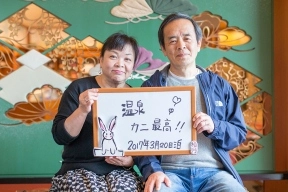 温泉
カニ最高!!
2017年3月20日泊